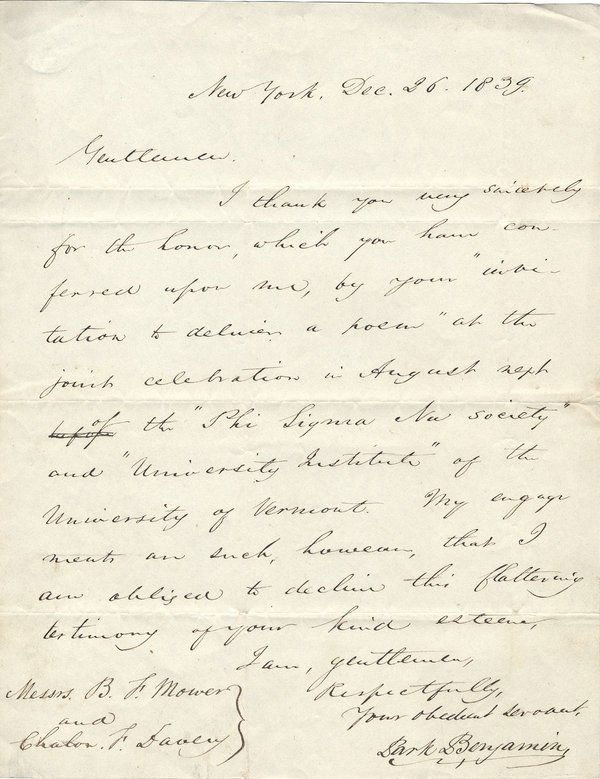 New York, Dec. 26. 1839.
Gentlemen.
I thank you very sincerely
for the honor, which you have con-
ferred upon me, by your "invi-
tation to deliver a poem" at the
joint celebration in August next
of the "Phi Sigma Nu society"
and "University Institute" of the
University of Vermont. My engage
ments are such, however, that I
am obliged to decline this flattering
testimony of your kind esteem,
I am, gentlemen,
Respectfully,
Your obedient servant,
Park Benjamin,
Messrs. B. F. Mower
and
F. Davey